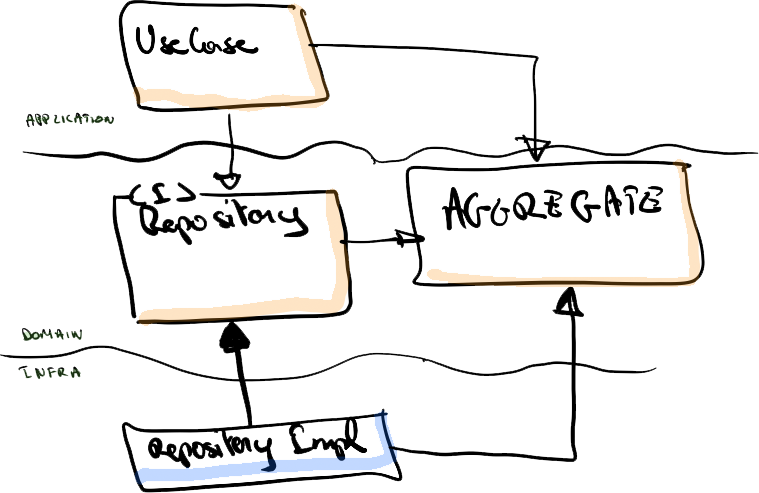 UseCase
APPLICATION
<I>
Repository
AGGREGATE
DOMAIN
INFRA
Repository Impl